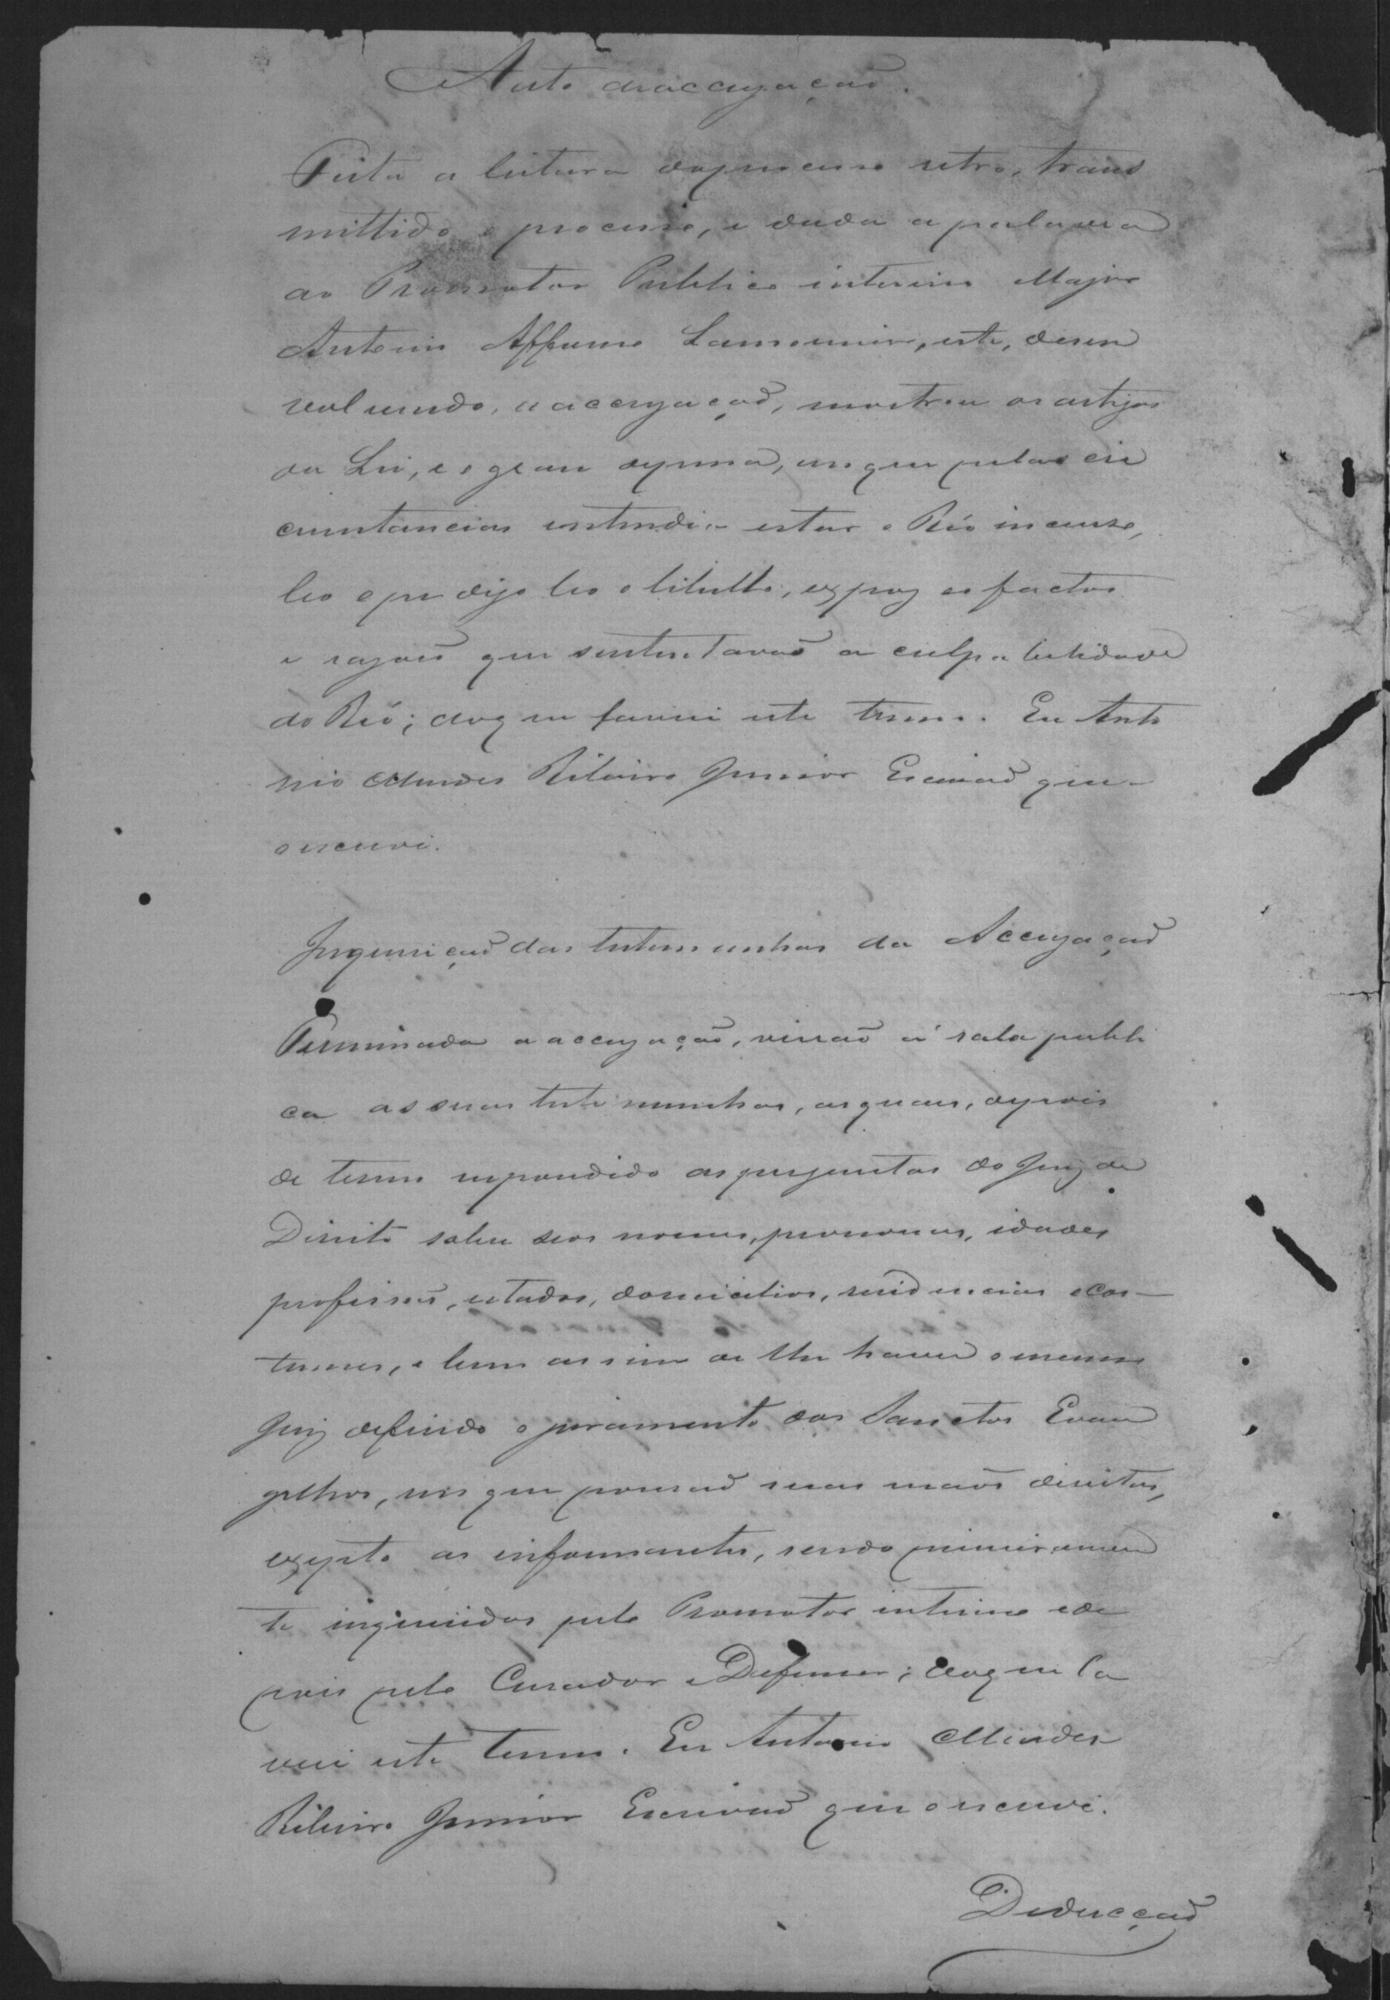 Auto da accuzação.
Feita a leitura do processo retro, trans
mittido o processo, e dada a palavra
ao Promotor Publico interino Major
Antonio Affonso Lamounier, este, desen
volvendo, a accuzação, mostrou os artigos
da Lei, e o grau da pena, em que pelas cir
cunstancias entendia estar o Réo incurso,
leo o libello, expoz os factos
e razoes que sustentavaõ a culpabilidade
do Reó; do q̃ eu lavrei este termo. Eu Anto
nio Mendes Ribeiro Junior Escrivaõ que
o escrevi.
Inquiriçaõ das testemunhas da Accuzaçaõ
Terminada a accuzaçaõ, vieraõ á sala publi
ca as suas testemunhas, as quaes, depois
de terem respondido as perguntas do Juiz de
Direito sobre seos nomes, pronomes, idades
profissoẽs, estados, domicilios, residencias e cos-
tumes, e bem assim de lhes haver o mesmo
Juiz deferido o juramento dos Sanctos Evan
gelhos, em que pouzaraõ suas maõs direitas,
exepto as informantes, sendo primeiramen
te inqueridas pelo Promotor interino e de
pois pelo Curador e Defensor; do q̃ eu la
vrei este termo. Eu Antonio Mendes
Ribeiro Junior Escrivaõ que o escrevi.
Deducçaõ